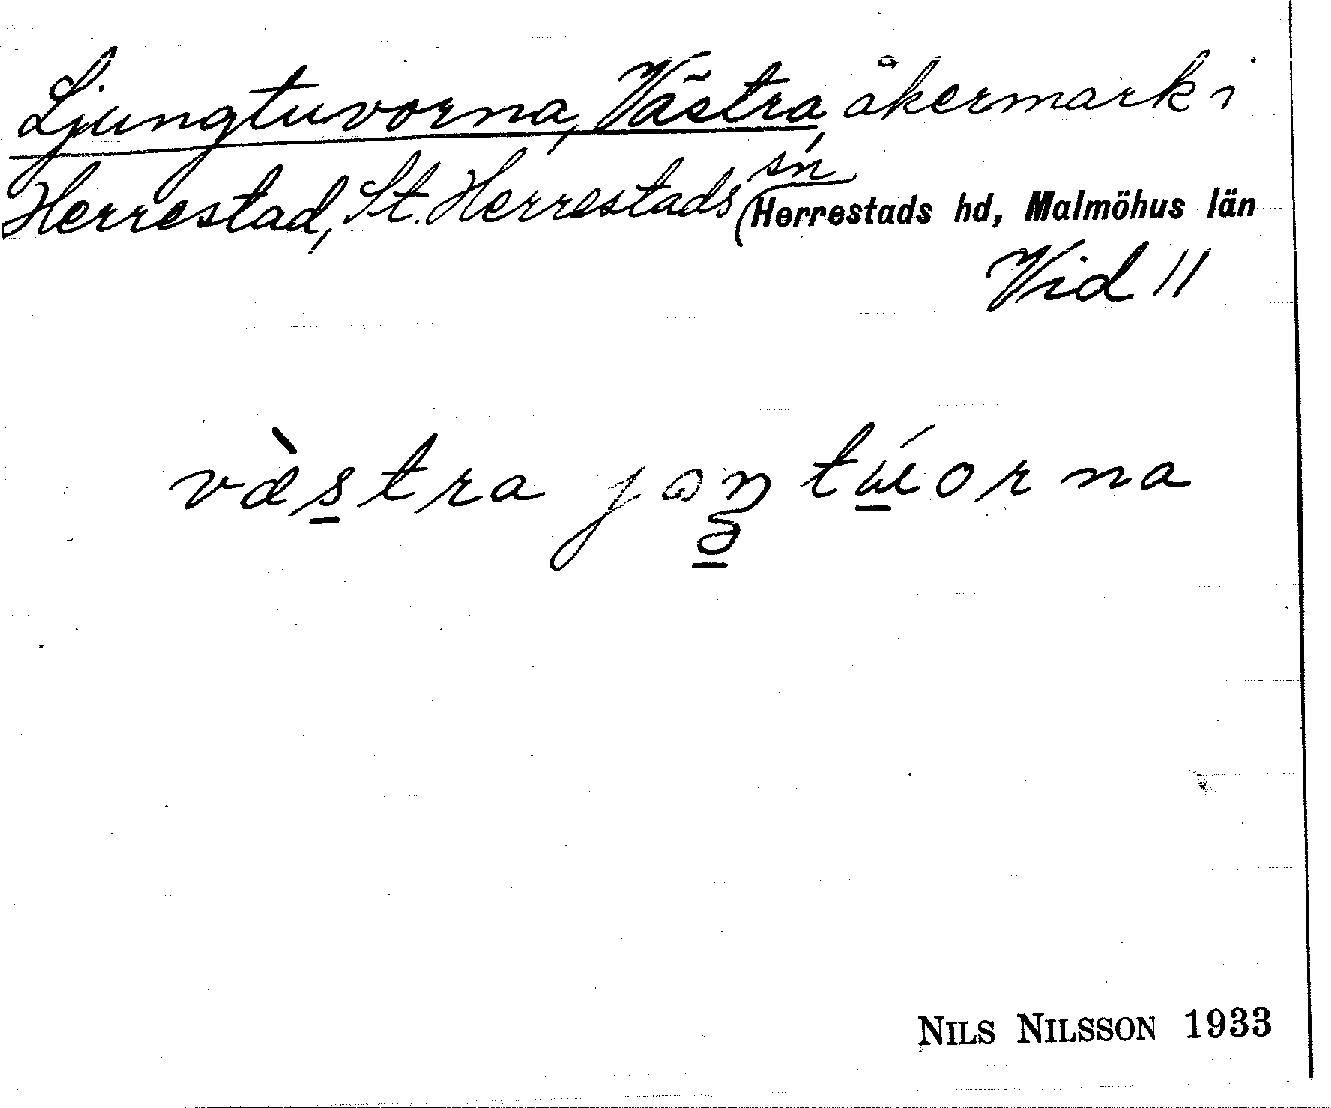 Ljungtuvorna, Västra, åkermark i
Herrestad, St. Herrestads sn (Herrestads hd, Malmöhus län
Vid 11
væ̀s̲tra jɷŋ tɯ́orna
ə̲
NILS NILSSON 1933